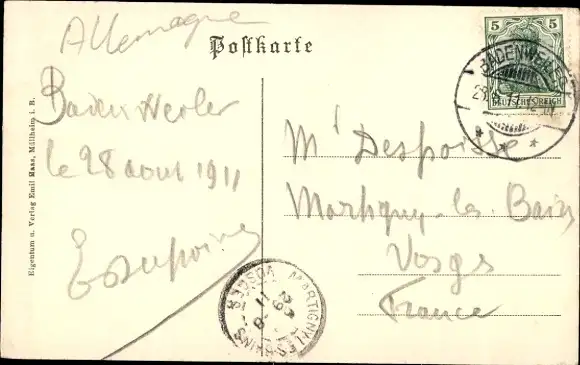 Allemagne
Postkarte
5 5
DEUTSCHES REICH
BADENWEILER
Badenweiler
le 28 aout 1911
Mr Despoisse
Martigny-les-Bains
Vosges
France
MARTIGNY LES BAINS
VOSGES
Eigentum u. Verlag Emil Maas, Müllheim i. B.